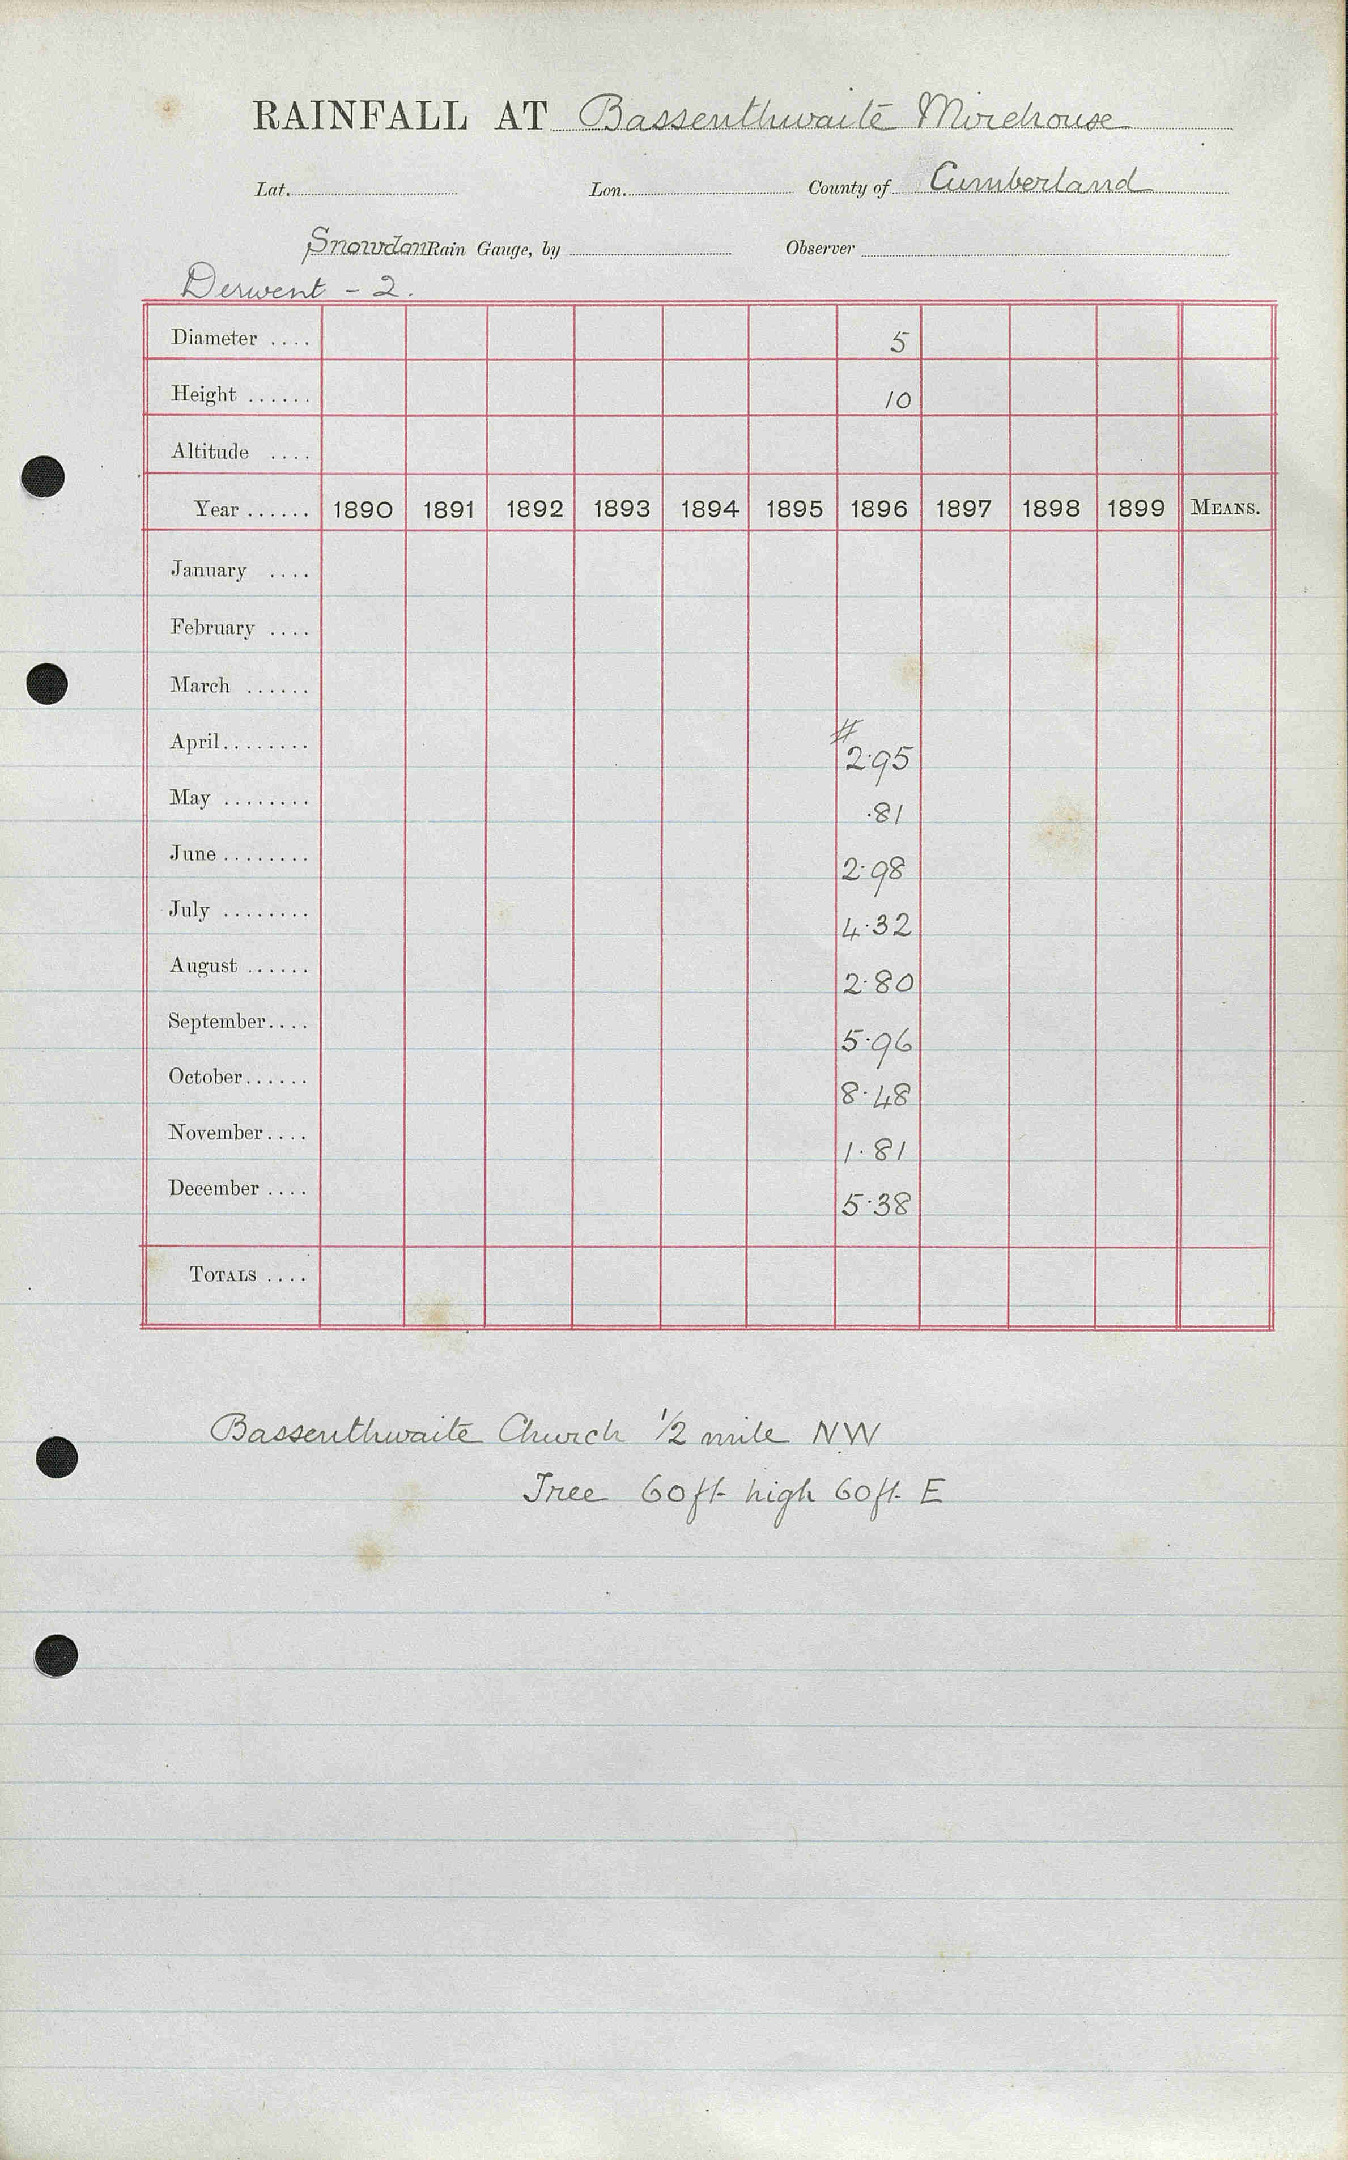 RAINFALL AT Bassenthwaite Mirehouse
Lat. Lon. County of Cumberland
Snowdon Rain Gauge, by Observer
Derwent - 2.
Diameter .... 5
Height ...... 10
Altitude ....
Year ...... 1890 1891 1892 1893 1894 1895 1896 1897 1898 1899 MEANS.
January ....
February ....
March ......
#
April........ 2.95
May ........ .81
June ........ 2.98
July ........ 4.32
August ...... 2.80
September.... 5.96
October...... 8.48
November.... 1.81
December .... 5.38
TOTALS ....
Bassenthwaite Church 1/2 mile NW
Tree 60ft high 60ft. E